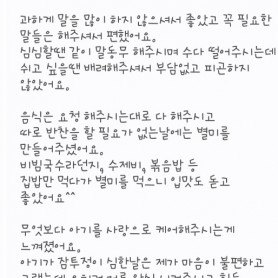 과하게 말을 많이 하지 않으셔서 좋았고 꼭 필요한
말들은 해주셔서 편했어요.
심심할땐 같이 말동무 해주시며 수다 떨어주시는데
쉬고 싶을땐 배려해주셔서 부담없고 피곤하지
않았어요.
음식은 요청 해주시는대로 다 해주시고
따로 반찬을 할 필요가 없는날에는 별미를
만들어주셨어요.
비빔국수라던지, 수제비, 볶음밥 등
집밥만 먹다가 별미를 먹으니 입맛도 돋고
좋았어요^^
무엇보다 아기를 사랑으로 케어해주시는게
느껴졌어요.
아기가 잠투정이 심한날은 제가 마음이 불편하고